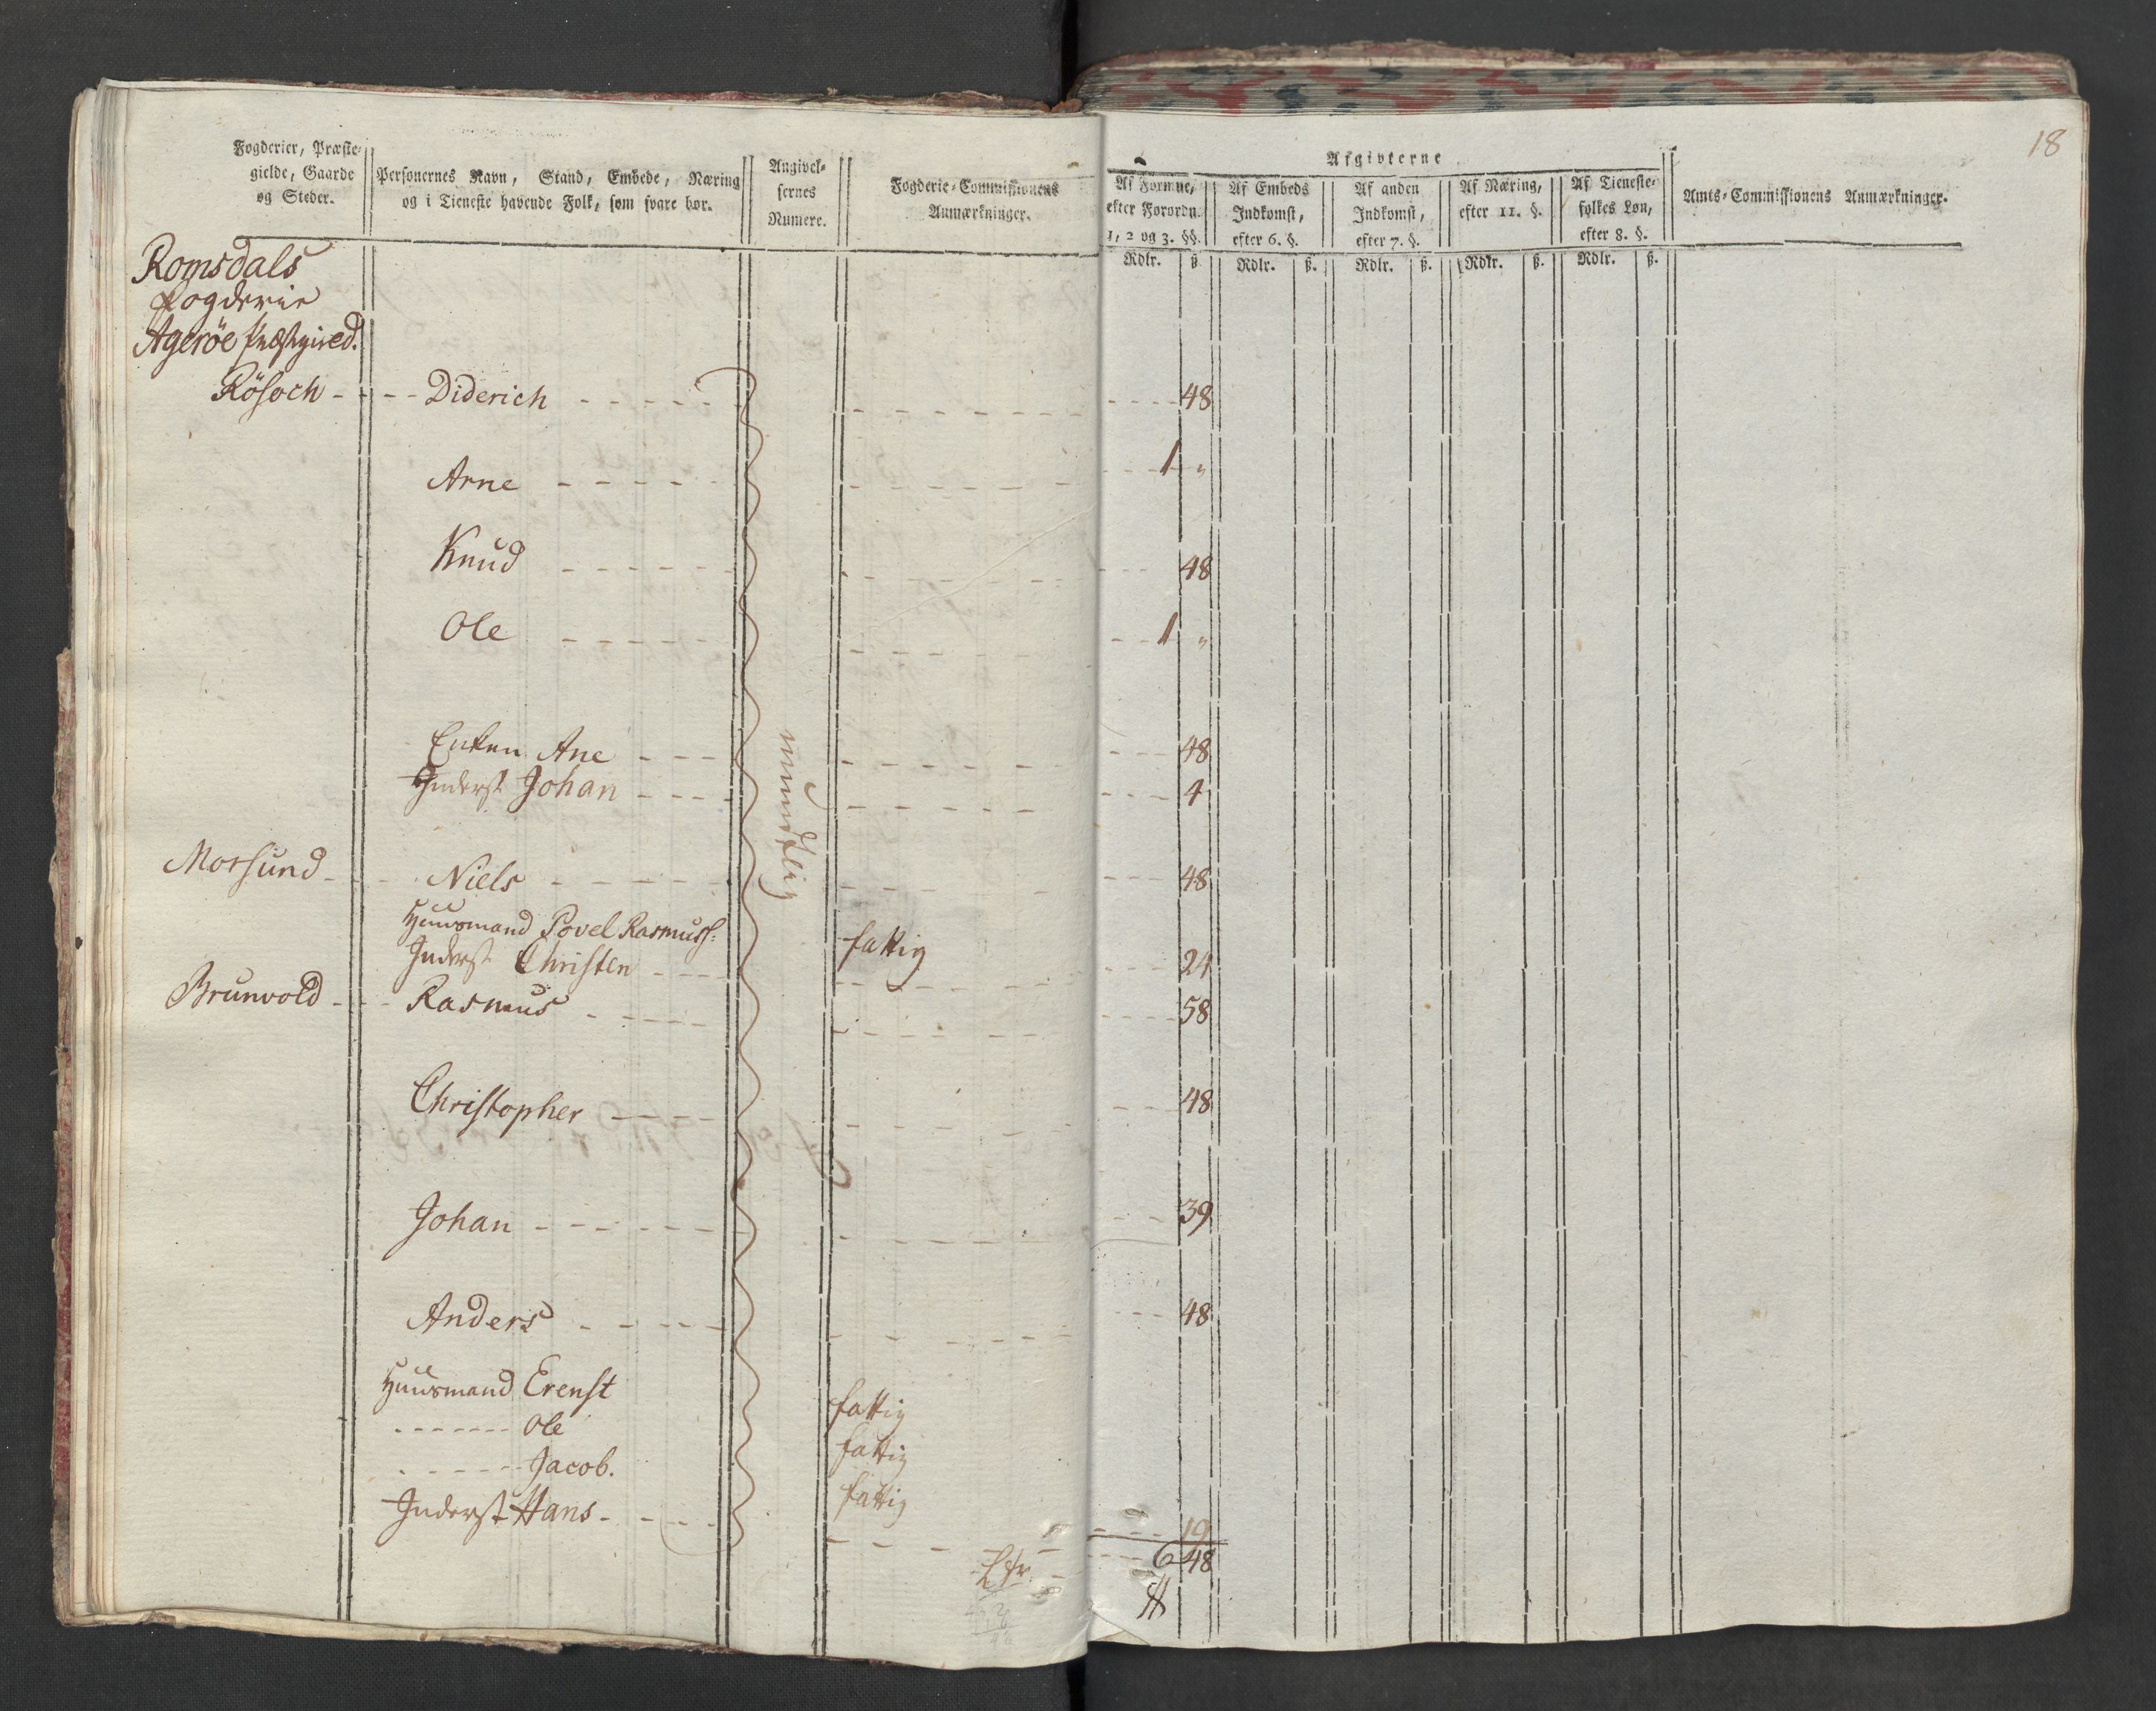 18
Fogderier, Præste-
gielde, Gaarde
og Steder.
Personernes Navn, Stand, Embede, Næring
og i Tieneste havende Folk, som svare bør.
Angivel-
sernes
Numere.
Fogderie-Commissionens
Anmærkninger.
Afgivterne
Af Formue,
efter Forordn.
1, 2 og 3. §§.
Af Embeds
Indkomst,
efter 6. §.
Af anden
Indkomst,
efter 7. §.
Af Næring,
efter 11. §.
Af Tieneste-
folkes Løn,
efter 8. §.
Amts-Commissionens Anmærkninger.
Rdlr. ß. Rdlr. ß. Rdlr. ß. Rdlr. ß. Rdlr. ß.
Romsdals
Fogderie
Agerøe Præstegield.
Rösoch - - - Diderich - - - - - 48
Arne - - - - - 1 "
Knud - - - - - 48
Ole - - - - - 1 "
Enken Ane - - - 48
Inderst Johan - - - 4
mundtlig
Morsund - - - Niels - - - - - 48
Huusmand Povel Rasmuss: fattig
Inderst Christen - - - 24
Brunvold - - - Rasmus - - - - - 58
Christopher - - - - 48
Johan - - - - - - 39
Anders - - - - - 48
Huusmand Erenst fattig
- - - - - - - Ole fattig
- - - - - - Jacob. fattig
Inderst Hans - - - - 19
6 48